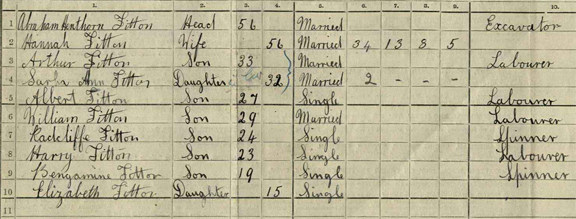 1. 2. 3. 4. 5. 6. 7. 8. 9. 10.
1 Abraham Henthorn Fitton Head 56 Married Excavator
2 Hannah Fitton Wife 56 Married 34 13 8 5
3 Arthur Fitton Son 33 Married Labourer
4 Sarha Ann Fitton Daughter 32 Married 2 - - -
5 Albert Fitton Son 27 Single Labourer
6 William Fitton Son 29 Married Labourer
7 Radcliffe Fitton Son 24 Single Spinner
8 Harry Fitton Son 23 Single Labourer
9 Bengamine Fitton Son 19 Single Spinner
10 Elizabeth Fitton Daughter 15 Single
11